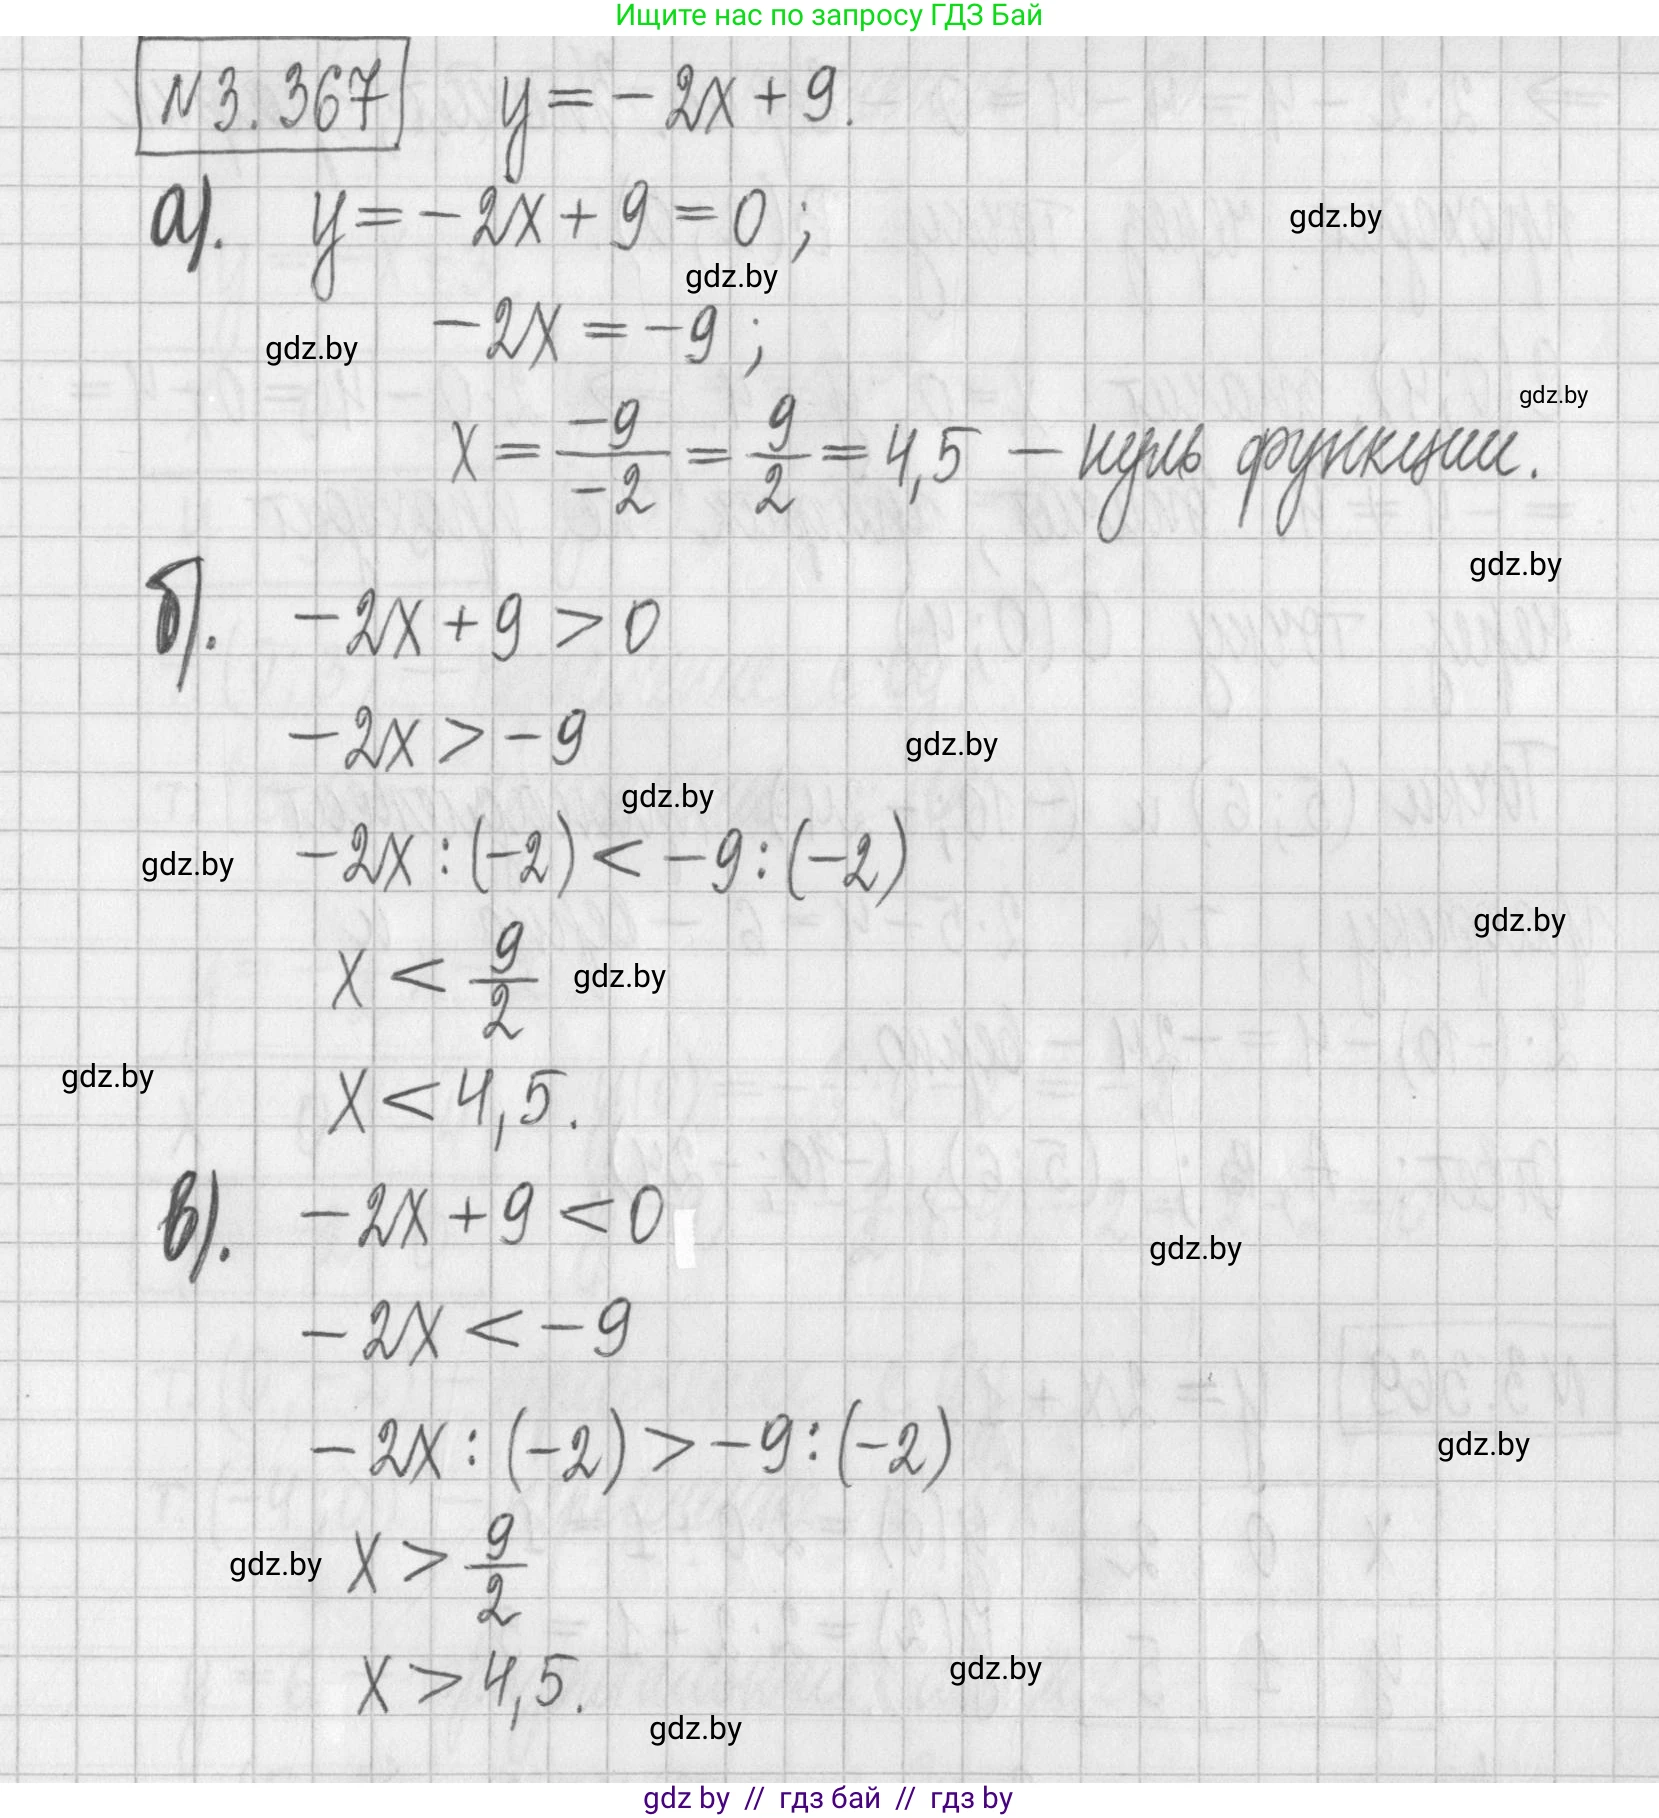 Ищите нас по запросу ГДЗ Бай
N3.367 y = -2x + 9.
а). y = -2x + 9 = 0 ;
gdz.by
gdz.by
-2x = -9 ;
gdz.by
gdz.by
x = -9/-2 = 9/2 = 4,5 - нуль функции.
gdz.by
б). -2x + 9 > 0
-2x > -9
gdz.by
gdz.by
-2x : (-2) < -9 : (-2)
gdz.by
gdz.by
x < 9/2
gdz.by
gdz.by
x < 4,5.
в). -2x + 9 < 0
gdz.by
-2x < -9
-2x : (-2) > -9 : (-2)
gdz.by
x > 9/2
gdz.by
x > 4,5.
gdz.by
gdz.by
gdz by // гдз бай // гдз by